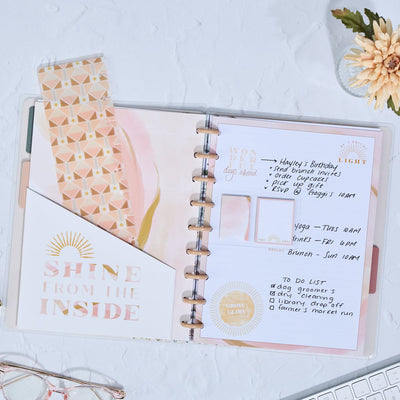 SHINE
FROM THE
INSIDE
WONDER
days ahead
LIGHT
Hayley's Birthday
• Send brunch invites
• Order cupcakes
• pick up gift
• RSVP @ 10AM
Yoga - TUES 6AM
drinks - FRI 6PM
Brunch - Sun 10AM
TO DO LIST
dog groomer's
dry cleaning
library drop off
farmer's market run
GLOW